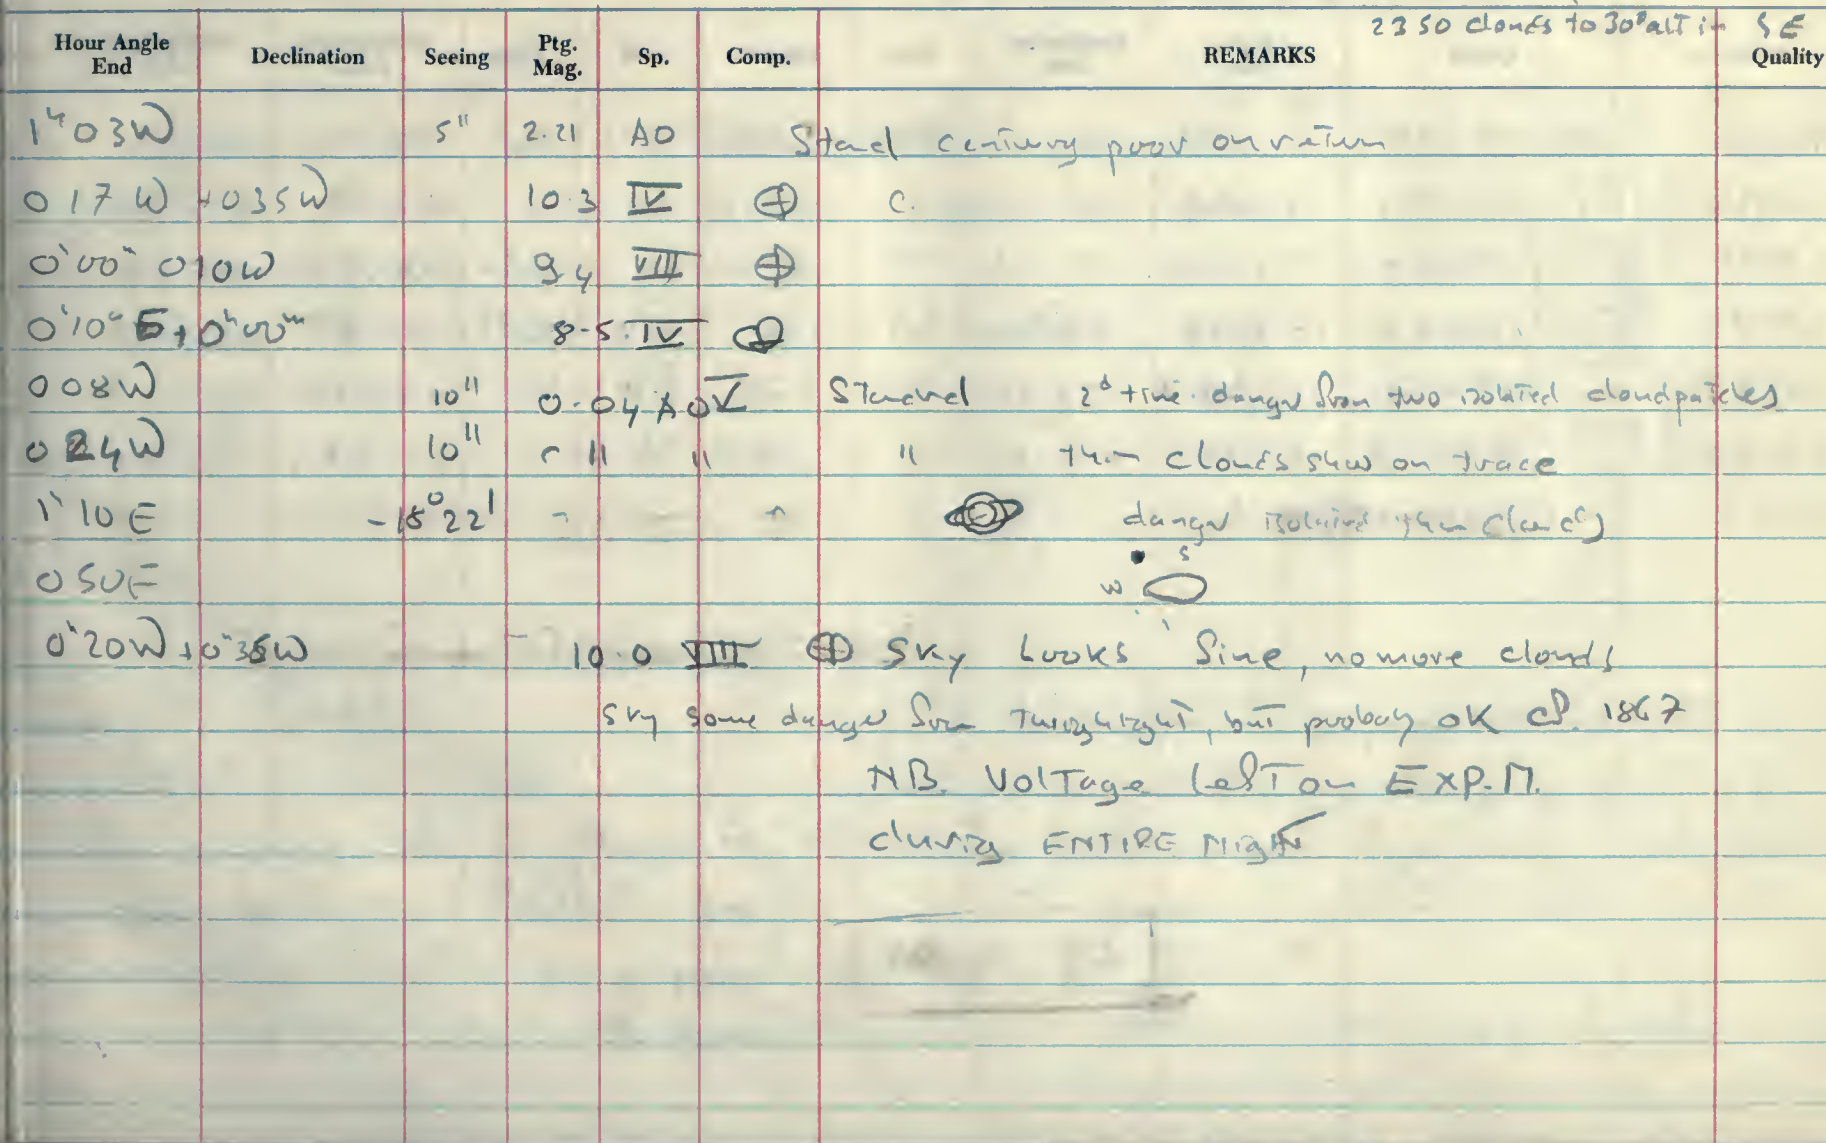 2350 clouds to 30° alt in SE
Hour Angle End Declination Seeing Ptg. Mag. Sp. Comp. REMARKS Quality
1ʰ03W 5" 2.21 A0 Stand centring poor on return
017W +035W 10.3 IV ⊕ C.
0ʰ00ᵐ 010W 9.4 VIII ⊕
0ʰ10ᵐE + 0ʰ00ᵐ 8.5 IV
008W 10" 0.04 A0 V Standard 2ᵈ time danger from two isolated cloudpatches
024W 10" " " " thin clouds show on trace
1ʰ10E -18°22' danger isolated thin clouds
S
050E W
0ʰ20W + 0ʰ35W 10.0 VIII ⊕ Sky Looks fine, no more clouds
sky some danger from Twilight, but probably OK cf. 1867
NB. Voltage left on EXP.M.
during ENTIRE Night